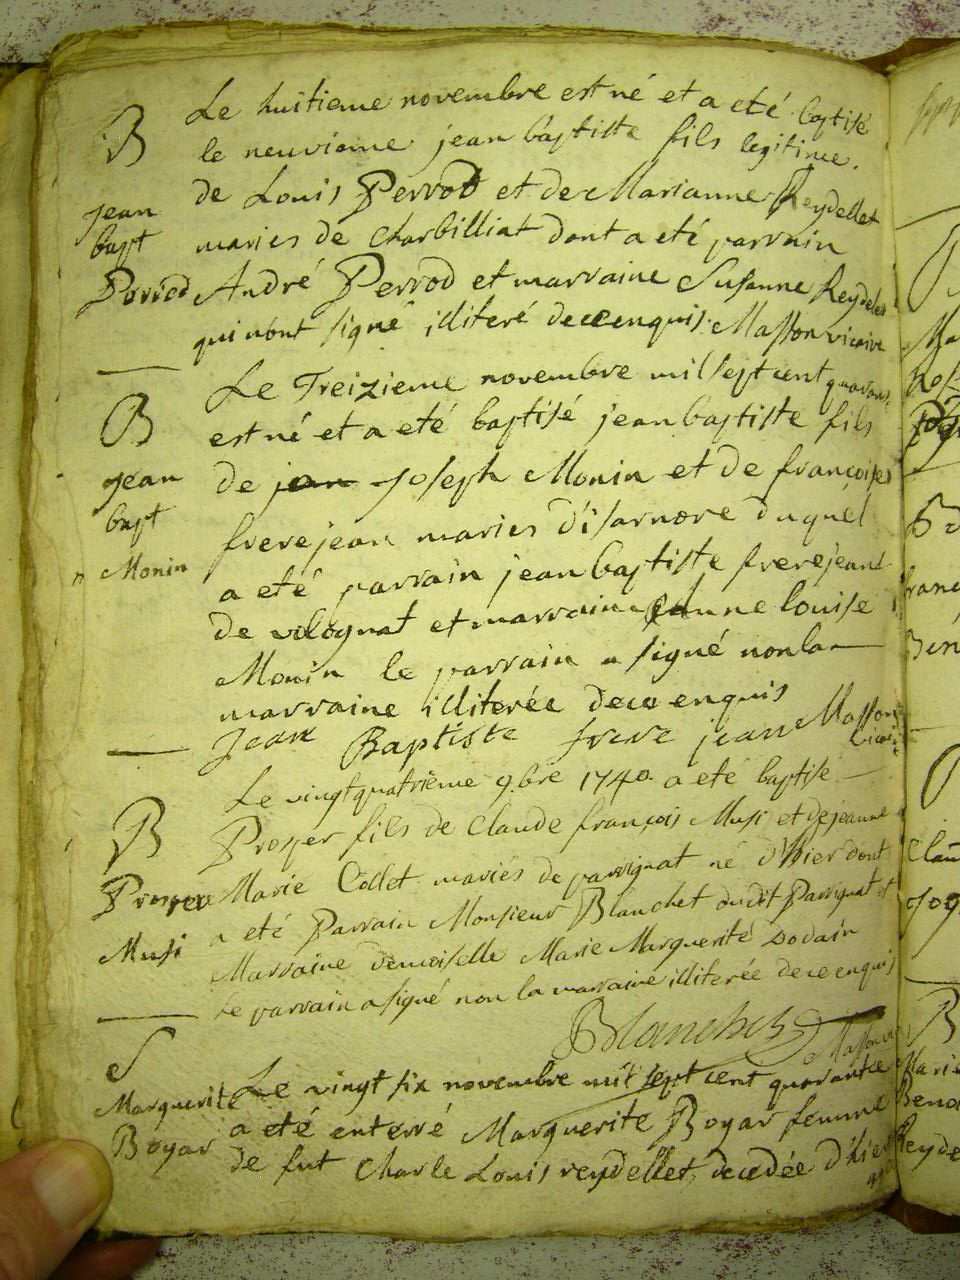 B
jean
bapt
Perrod
Le huitieme novembre est né et a eté baptisé
le neuvieme jean baptiste fils legitime
de Louis Perrod et de Marianne Reydellet
maries de charbilliat dont a eté parrain
André Perrod et marraine Susanne Reydelet
qui n'ont signé illiteré de ce enquis. Masson vicaire
B
jean
bapt
Monin
Le Treizieme novembre mil sept cent quarante
est né et a eté baptisé jean baptiste fils
de jean joseph Monin et de françoise
frerejean maries d'isarnore duquel
a eté parrain jean baptiste frerejean
de volognat et marraine jeanne louise
Monin le parrain a signé non la
marraine illiterée de ce enquis
Jean Baptiste frere jean Masson
vicaire
B
Prosper
Musi
Le vingtquatrième 9.bre 1740 a eté baptisé
Prosper fils de Claude françois Musi et de jeanne
Marie Collet mariés de parrignat né d'hier dont
a eté Parrain Monsieur Blanchet dudit Parrignat et
Marraine demoiselle Marie Marguerite Dodain
Le parrain a signé non la marraine illiterée de ce enquis
Blanchet Masson vic
S
Marguerite
Boyar
Le vingt six novembre mil sept cent quarante
a eté enterré Marguerite Boyar femme
de fut Charle Louis reydellet, decedée d'hier